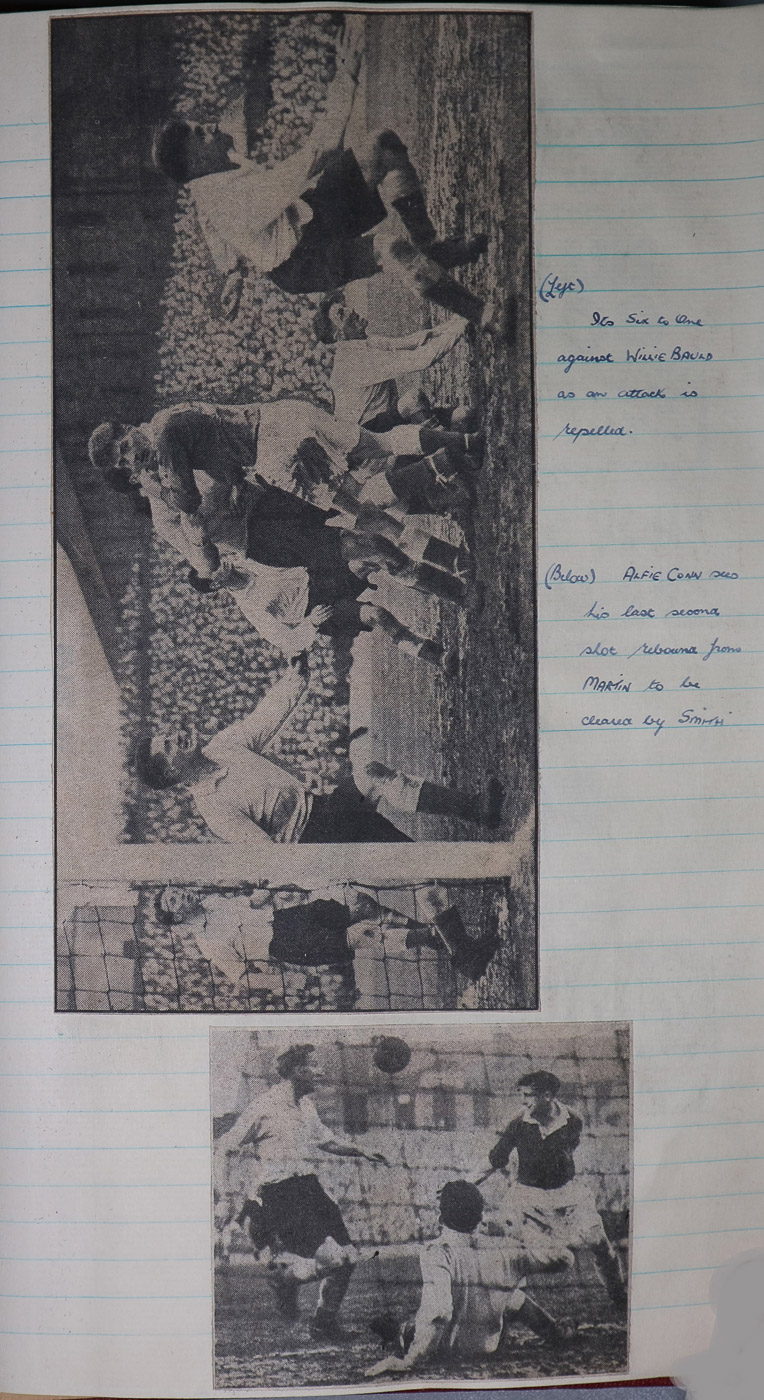 (Left)
Its Six to One
against WILLIE BAULD
as an attack is
repelled.
(Below) ALFIE CONN sees
his last second
shot rebound from
MARTIN to be
cleared by SMITH